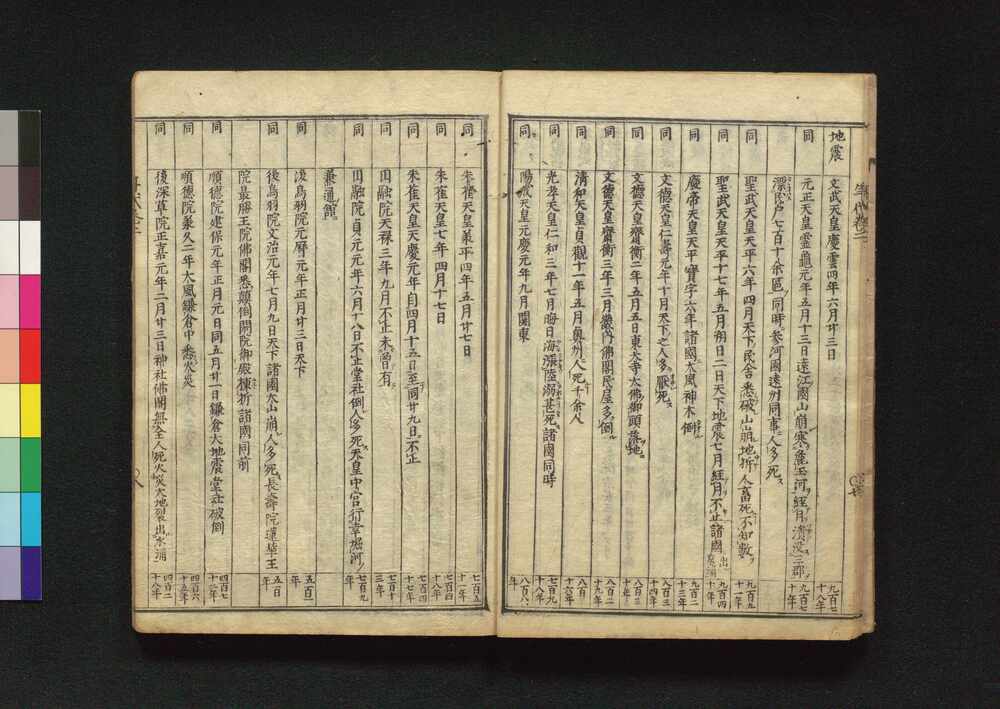 地震 文武天皇慶雲四年六月廿三日 九百七十八年
同 元正天皇霊龜元年五月十三日遠江國山崩寒麁玉河經月潰没三郡 九百七十年
漂民戸七百十八余區同時參河國遠州同事人多死
同 聖武天皇天平六年四月天下民舎悉破山崩地折人畜死不知数 九百五十一年
同 聖武天皇天平十七年五月朔日二日天下地震七月經月不止諸國 九百四十年
同 廢帝天皇天平寳字六年諸國大風神木倒 九百二十三年
同 文德天皇仁壽元年十月天下之人多厭死 八百三十四年
同 文德天皇齊衡二年五月五日東大寺大佛御頭落地 八百三十年
同 文德天皇齊衡三年三月畿内佛閣民屋多倒 八百二十九年
同 清和天皇貞觀十一年五月奥州人死千余人 八百十六年
同 光孝天皇仁和三年七月晦日海漲陸溺甚死諸國同時 七百九十八年
同 陽成天皇元慶元年九月關東 八百八年
同 朱雀天皇義平四年五月廿七日 七百五十一年
同 朱雀天皇七年四月十七日 七百四十八年
同 朱雀天皇天慶元年自四月十五日至同廿九日不止 七百四十七年
同 円融院天禄三年九月不止未曽有 七百十三年
同 円融院貞元元年六月十八日不止堂社倒人多死天皇中宮行幸堀河 七百九年
兼通館
同 後鳥羽院元暦元年正月廿三日天下 五百一年
同 後鳥羽院文治元年七月九日天下諸國大山崩人多死長壽院蓮華王 五百年
院最勝王院佛閣悉顛倒閑院御殿棟折諸國同前
同 順德院建保元年正月元日同五月廿一日鎌倉大地震堂社破倒 四百七十二年
同 順德院兼久二年大風鎌倉中悉火災 四百六十五年
同 後深草院正嘉元年二月廿三日神社佛閣無全人死火災大地裂出水涌 四百二十八年